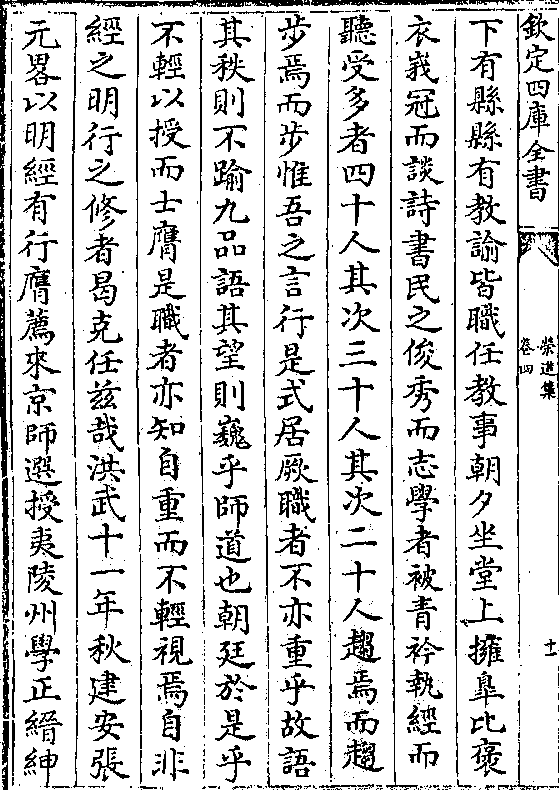 欽定四庫全書
榮進集
卷四
十
下有縣縣有教諭皆職任教事朝夕坐堂上擁臯比褒
衣峩冠而談詩書民之俊秀而志學者被青衿執經而
聽受多者四十人其次三十人其次二十人趨焉而趨
步焉而步惟吾之言行是式居厥職者不亦重乎故語
其秩則不踰九品語其望則巍乎師道也朝廷於是乎
不輕以授而士膺是職者亦知自重而不輕視焉自非
經之明行之修者曷克任兹哉洪武十一年秋建安張
元畧以明經有行膺薦來京師選授夷陵州學正縉紳